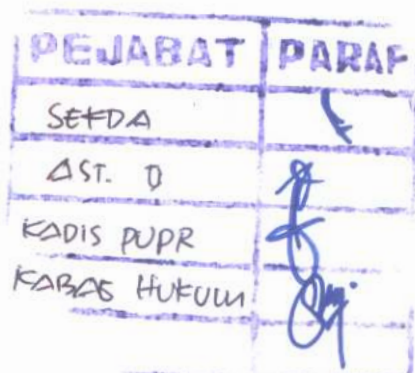 PEJABAT PARAF
SEKDA
AST. D
KADIS PUPR
KABAG HUKUM